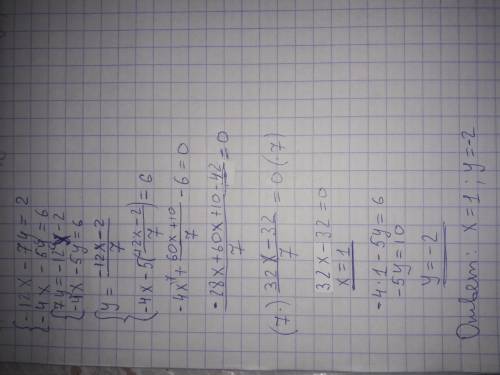 {-12x-7y=2
{-4x-5y=6
{7y=-12x-2
{-4x-5y=6
{y = \frac{-12x-2}{7}
{-4x-5(\frac{-12x-2}{7})=6
-4x+\frac{60x+10}{7}-6=0
\frac{-28x+60x+10-42}{7}=0
(7·) \frac{32x-32}{7}=0(·7)
32x-32=0
x=1
-4·1-5y=6
-5y=10
y=-2
Ответ: x=1; y=-2